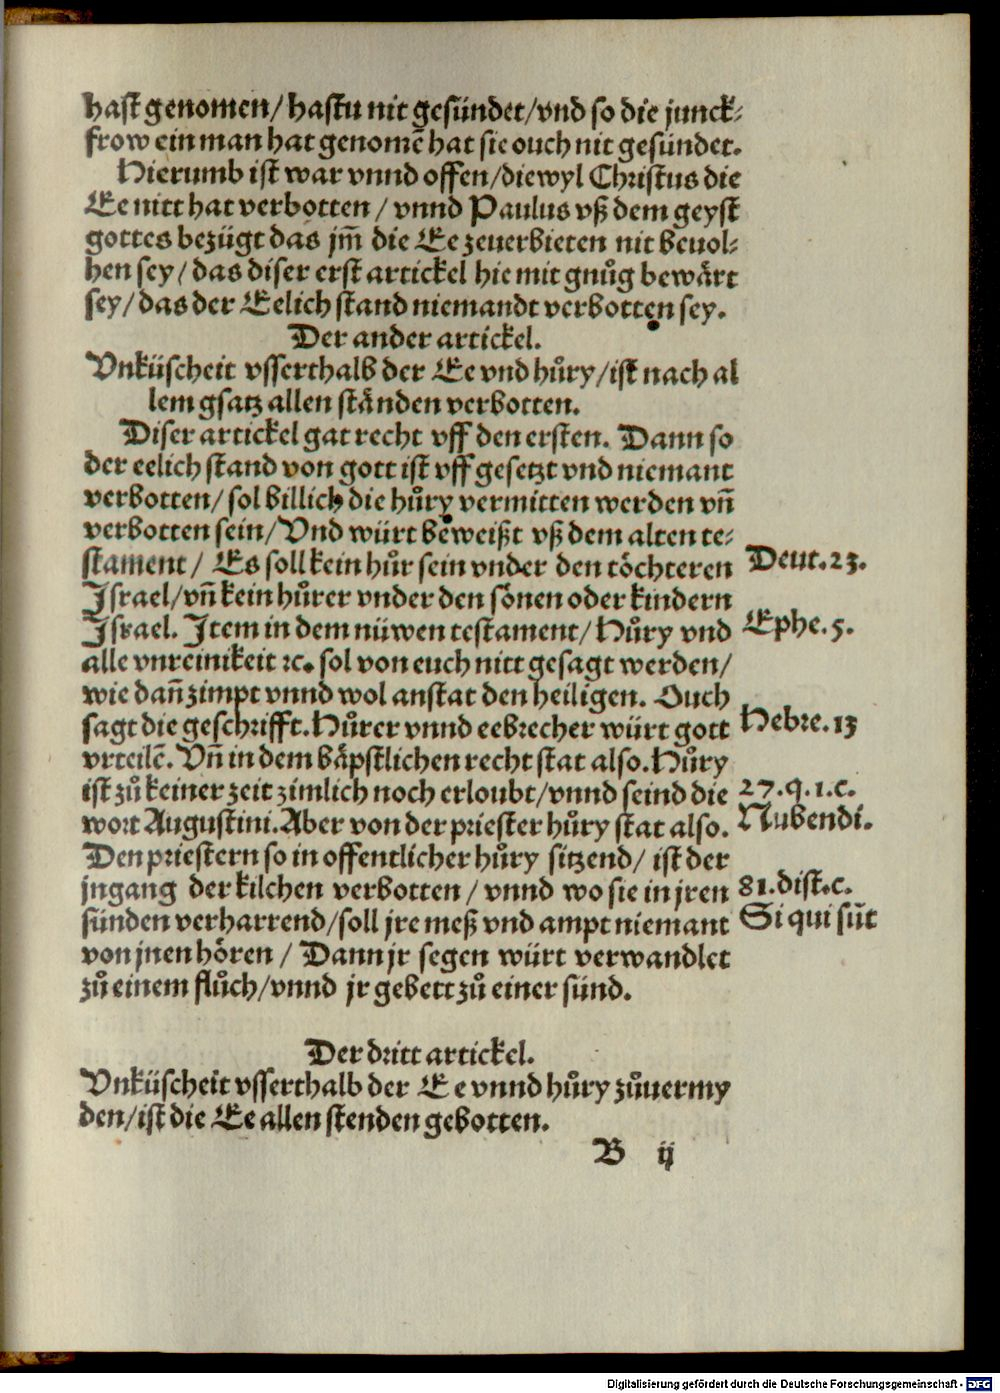 hast genomen/ hastu nit gesündet/ vnd so die junck⸗
frow ein man hat genomē hat sie ouch nit gesündet.
Hierumb ist war vnnd offen/ diewyl Christus die
Ee nitt hat verbotten / vnnd Paulus vß dem geyst
gottes bezügt das jm̄ die Ee zeuerbieten nit beuol⸗
hen sey/ das diser erst artickel hie mit gnůg bewärt
sey/ das der Eelich stand niemandt verbotten sey.
Der ander artickel.
Vnküscheit vsserthalb der Ee vnd hůry/ ist nach al
lem gsatz allen ständen verbotten.
Diser artickel gat recht vff den ersten. Dann so
der eelich stand von gott ist vff gesetzt vnd niemant
verbotten/ sol billich die hůry vermitten werden vn̄
verbotten sein/ Vnd würt beweißt vß dem alten te⸗
stament/ Es soll kein hůr sein vnder den töchteren
Deut. 23.
Israel/ vn̄ kein hůrer vnder den sönen oder kindern
Israel. Item in dem nüwen testament/ Hůry vnd
Ephe. 5.
alle vnreinikeit ꝛc. sol von euch nitt gesagt werden/
wie dañ zimpt vnnd wol anstat den heiligen. Ouch
sagt die geschrifft. Hůrer vnnd eebrecher würt gott
Hebre. 13
vrteilē. Vn̄ in dem bäpstlichen recht stat also. Hůry
ist zů keiner zeit zimlich noch erloubt/ vnnd seind die
27. q. 1. c.
wort Augustini. Aber von der priester hůry stat also.
Nubendi.
Den priestern so in offentlicher hůry sitzend/ ist der
jngang der kilchen verbotten / vnnd wo sie in jren
81. dist. c.
sünden verharrend/ soll jre meß vnd ampt niemant
Si qui sūt
von jnen hören / Dann jr segen würt verwandlet
zů einem flůch/ vnnd jr gebett zů einer sünd.
Der dritt artickel.
Vnküscheit vsserthalb der Ee vnnd hůry zůuermy
den/ ist die Ee allen stenden gebotten.
B ij
Digitalisierung gefördert durch die Deutsche Forschungsgemeinschaft - DFG